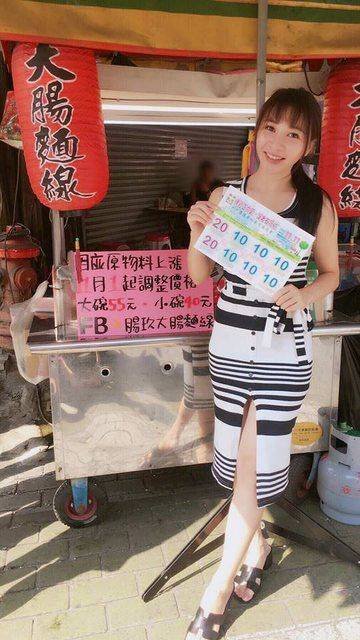 大腸麵線
因應原物料上漲
11月1起調整價格
大碗55元、小碗40元
FB 腸玖大腸麵線
20 10 10 10
20 10 10 10